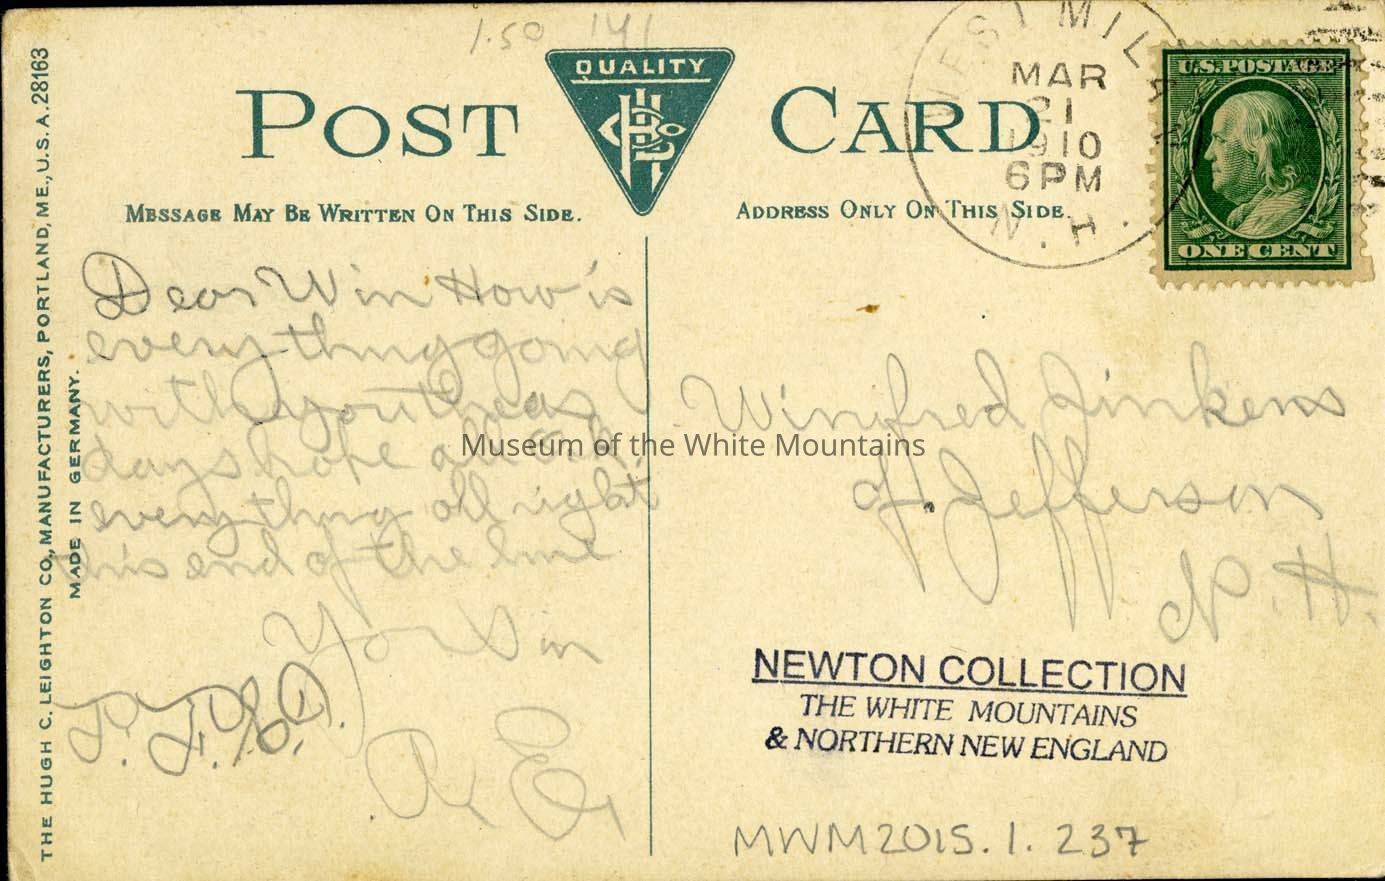 1.50 141
QUALITY
POST CARD
MESSAGE MAY BE WRITTEN ON THIS SIDE.
ADDRESS ONLY ON THIS SIDE.
WEST MILAN
MAR
21
1910
6 PM
N. H.
U.S. POSTAGE
ONE CENT
THE HUGH C. LEIGHTON CO., MANUFACTURERS, PORTLAND, ME., U.S.A. 28163
MADE IN GERMANY.
Dear Win How is
everything going
with you theas
days hope all O.K.
everything all right
this end of the line
R E
Winifred Jinkens
Jefferson
N. H.
Museum of the White Mountains
NEWTON COLLECTION
THE WHITE MOUNTAINS
& NORTHERN NEW ENGLAND
MWM2015.1.237